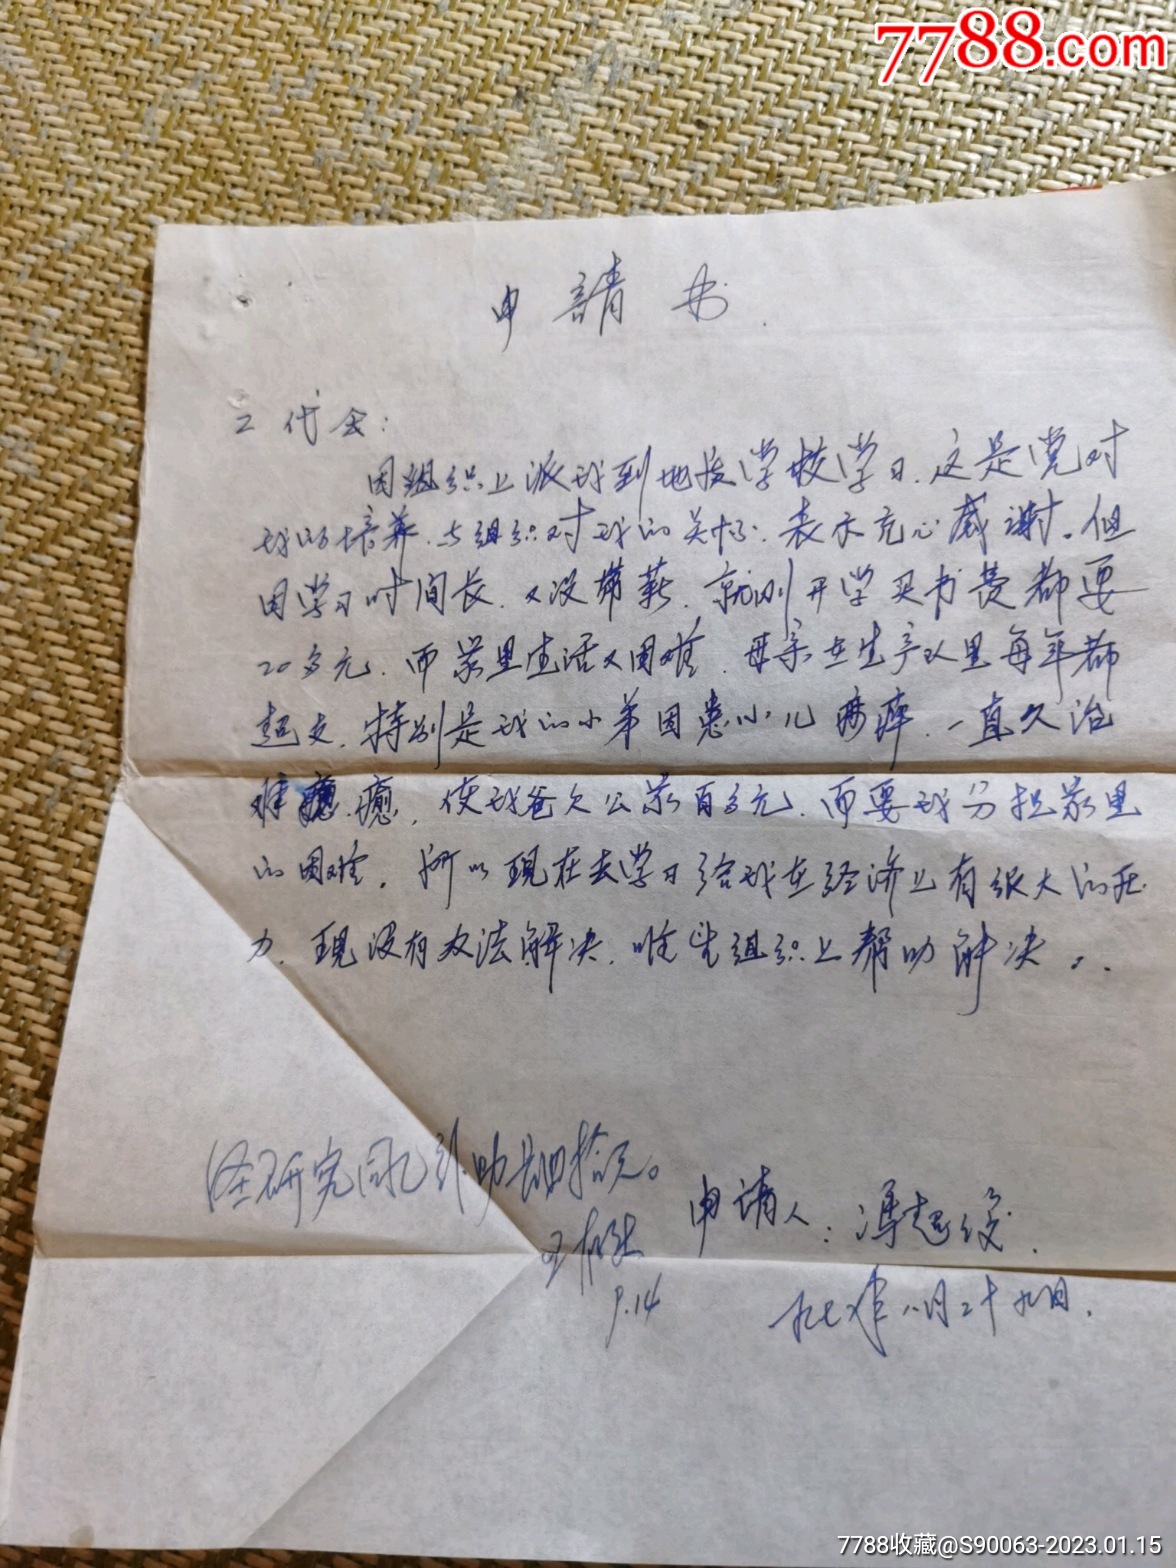 7788.com
申請书.
工代会:
因组织上派我到地校学校学习.这是党对
我的培养.与组织对我的关怀.表示充心感谢.但
因学习时间长.又没带薪.就刚开学买书费都要
20多元.而家里生活又困难.母亲在生产队里每年都
超支.特别是我的小弟因患小儿麻痹.一直久治
难 癒.使我爸欠公家百多元.而要我分担家里
的困难.所以现在去学习给我在经济上有很大的压
力.现没有办法解决.唯望组织上帮助解决..
经研究同意补助 四拾元。
申請人:冯起
9.14
年八月二十九日.
7788收藏@S90063-2023.01.15